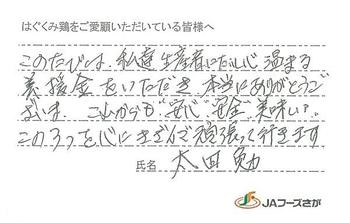 はぐくみ鶏をご愛顧いただいている皆様へ
このたびは、私達生産者にたいし心温まる
義援金をいただき、本当にありがとうご
ざいます。これからも"安心""安全""美味しい"
この3つを心にきざんで頑張って行きます
氏名 太田 勉
JAフーズさが